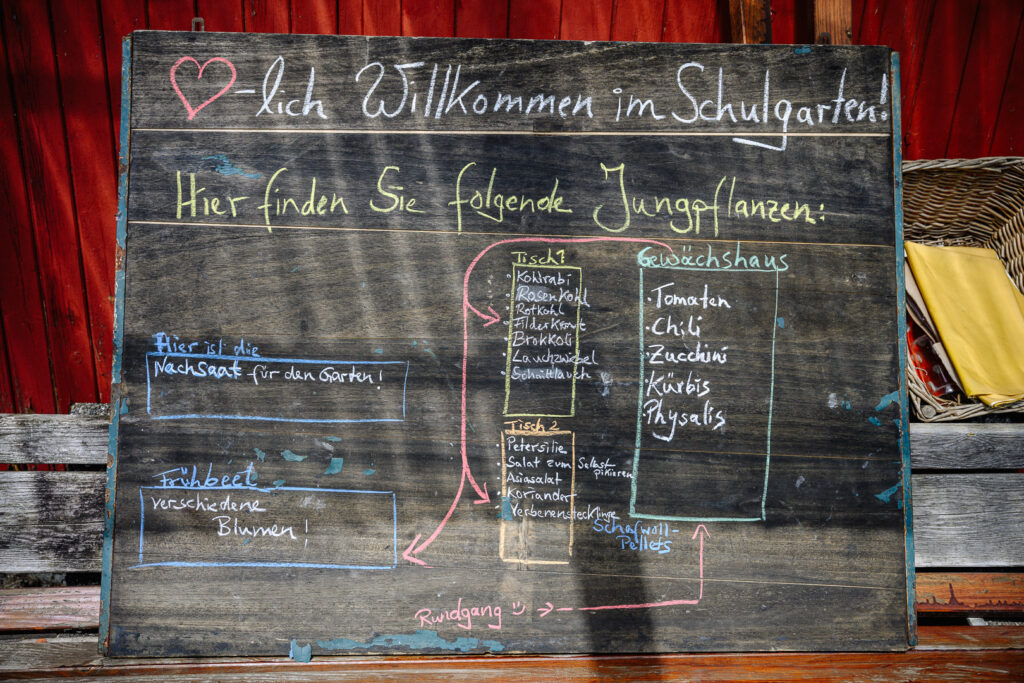 ♥-lich Willkommen im Schulgarten!
Hier finden Sie folgende Jungpflanzen:
Tisch 1
· Kohlrabi
· Rosenkohl
· Rotkohl
· Filderkraut
· Brokkoli
· Lauchzwiebel
· Schnittlauch
Gewächshaus
· Tomaten
· Chili
· Zucchini
· Kürbis
· Physalis
Hier ist die
Nachsaat für den Garten!
Tisch 2
· Petersilie
· Salat zum Selbst
pikieren
· Asiasalat
· Koriander
· Verbenenstecklinge
Frühbeet
verschiedene
Blumen!
Schafwoll-
Pellets
Rundgang